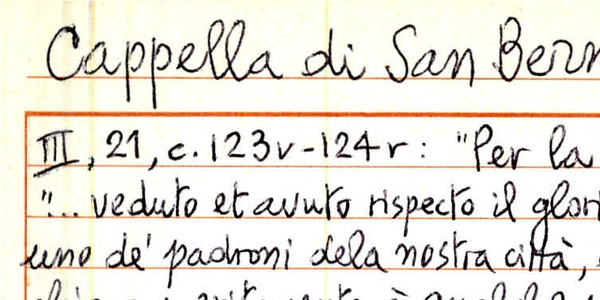 Cappella di San Bern
III, 21, c. 123v-124r: "Per la
"... veduto et avuto rispecto il glori
uno de' padroni dela nostra città,